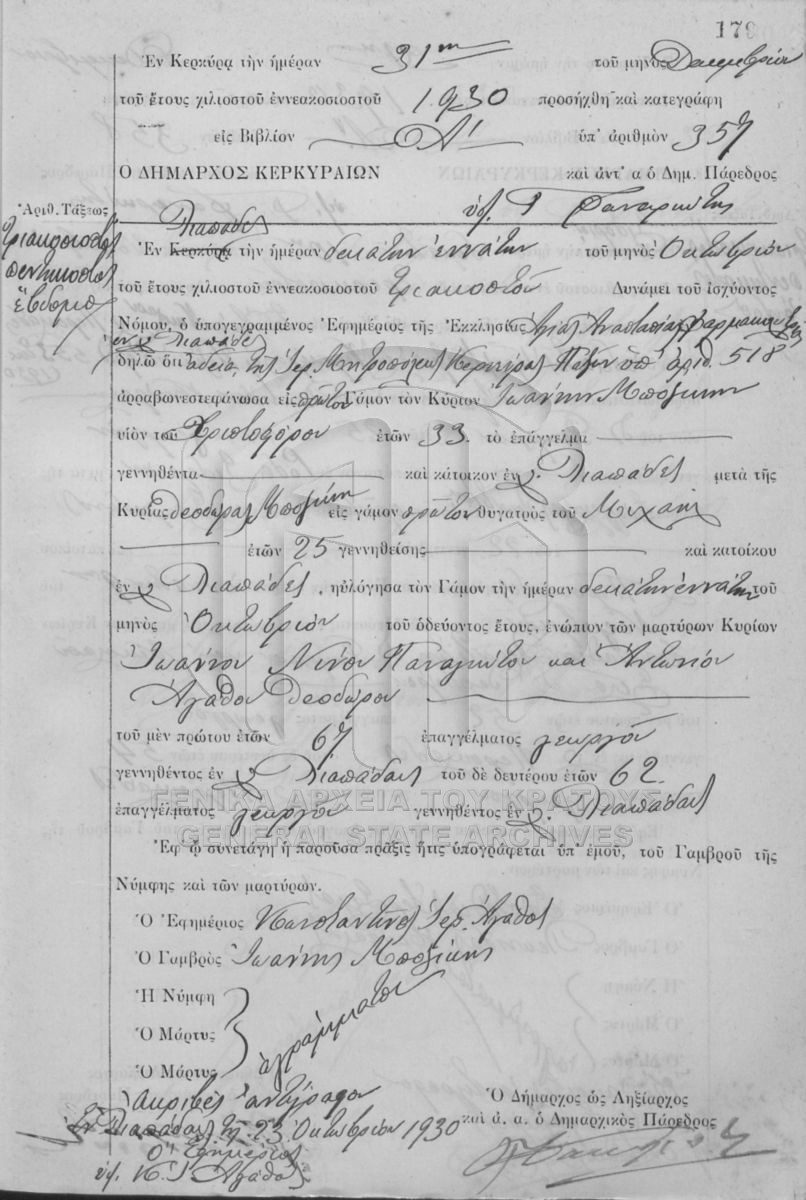 179
Ἐν Κερκύρᾳ τὴν ἡμέραν 31ην τοῦ μηνὸς Δεκεμβρίου
τοῦ ἔτους χιλιοστοῦ ἐννεακοσιοστοῦ 1930 προσήχθη καὶ κατεγράφη
εἰς Βιβλίον Α' ὑπ' ἀριθμὸν 357
Ο ΔΗΜΑΡΧΟΣ ΚΕΡΚΥΡΑΙΩΝ καὶ ἀντ' α ὁ Δημ. Πάρεδρος
Ἀριθ. Τάξεως
Τριακοσιοστὸς
πεντηκοστὸς
ἕβδομος
Λιαπάδες
Ἐν Κερκύρᾳ τὴν ἡμέραν δεκάτην ἐννάτην τοῦ μηνὸς Ὀκτωβρίου
τοῦ ἔτους χιλιοστοῦ ἐννεακοσιοστοῦ τριακοστοῦ Δυνάμει τοῦ ἰσχύοντος
Νόμου, ὁ ὑπογεγραμμένος Ἐφημέριος τῆς Ἐκκλησίας Ἁγίας Ἀναστασίας Φαρμακολυτρίας
ἐν Λιαπάδες
δηλῶ ὅτι ἀδείᾳ τῆς Ἱερ. Μητροπόλεως Κερκύρας Παξῶν ὑπ' ἀριθ. 518
ἀρραβωνεστεφάνωσα εἰς πρῶτον Γάμον τὸν Κύριον Ἰωάννην Μποζίκην
υἱὸν τοῦ Χριστοφόρου ἐτῶν 33. τὸ ἐπάγγελμα
γεννηθέντα καὶ κάτοικον ἐν Λιαπάδες μετὰ τῆς
Κυρίας Θεοδώρας Μποζίκη εἰς γάμον πρῶτον θυγατρὸς τοῦ Μιχαὴλ
ἐτῶν 25 γεννηθείσης καὶ κατοίκου
ἐν Λιαπάδες, ηὐλόγησα τὸν Γάμον τὴν ἡμέραν δεκάτην ἐννάτην τοῦ
μηνὸς Ὀκτωβρίου τοῦ ὁδεύοντος ἔτους, ἐνώπιον τῶν μαρτύρων Κυρίων
Ἰωάννου Νίνου Παναγιώτου καὶ Ἀντωνίου
Ἀγάθου Θεοδώρου
τοῦ μὲν πρώτου ἐτῶν 67 ἐπαγγέλματος γεωργοῦ
γεννηθέντος ἐν Λιαπάδαις τοῦ δὲ δευτέρου ἐτῶν 62.
ΓΕΝΙΚΑ ΑΡΧΕΙΑ ΤΟΥ ΚΡΑΤΟΥΣ
ἐπαγγέλματος γεωργοῦ γεννηθέντος ἐν Λιαπάδαις
GENERAL STATE ARCHIVES
Ἐφ' ᾧ συνετάγη ἡ παροῦσα πρᾶξις ἥτις ὑπογράφεται ὑπ' ἐμοῦ, τοῦ Γαμβροῦ τῆς
Νύμφης καὶ τῶν μαρτύρων.
Ὁ Ἐφημέριος Κωνσταντῖνος Ἱερ. Ἀγάθος
Ὁ Γαμβρὸς Ἰωάννης Μποζίκης
Ἡ Νύμφη
Ὁ Μάρτυς ἀγράμματοι
Ὁ Μάρτυς
Ἀκριβὲς ἀντίγραφον
Ἐν Λιαπάδαις τῇ 23 Ὀκτωβρίου 1930
Ὁ Ἐφημέριος
ὑπ. Κ. Ι. Ἀγάθος
Ὁ Δήμαρχος ὡς Ληξίαρχος
καὶ ἀ. α. ὁ Δημαρχικὸς Πάρεδρος